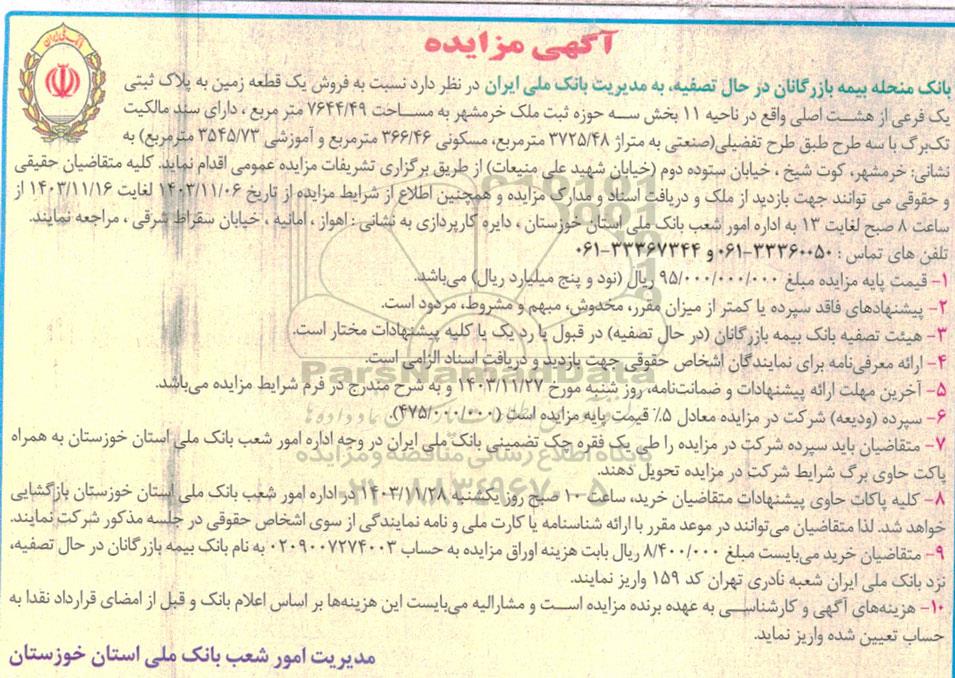 آگهی مزایده
بانک منحله بیمه بازرگانان در حال تصفیه، به مدیریت بانک ملی ایران در نظر دارد نسبت به فروش یک قطعه زمین به پلاک ثبتی
یک فرعی از هشت اصلی واقع در ناحیه ۱۱ بخش سه حوزه ثبت ملک خرمشهر به مساحت ۷۶۴۴/۴۹ متر مربع ، دارای سند مالکیت
تک‌برگ با سه طرح طبق طرح تفضیلی(صنعتی به متراژ ۳۷۲۵/۴۸ مترمربع، مسکونی ۳۶۶/۴۶ مترمربع و آموزشی ۳۵۴۵/۷۳ مترمربع) به
نشانی: خرمشهر، کوت شیخ ، خیابان ستوده دوم (خیابان شهید علی منیعات) از طریق برگزاری تشریفات مزایده عمومی اقدام نماید. کلیه متقاضیان حقیقی
و حقوقی می توانند جهت بازدید از ملک و دریافت اسناد و مدارک مزایده و همچنین اطلاع از شرایط مزایده از تاریخ ۱۴۰۳/۱۱/۰۶ لغایت ۱۴۰۳/۱۱/۱۶ از
ساعت ۸ صبح لغایت ۱۳ به اداره امور شعب بانک ملی استان خوزستان ، دایره کارپردازی به نشانی : اهواز ، امانیه ، خیابان سقراط شرقی ، مراجعه نمایند.
تلفن های تماس : ۳۳۳۶۰۰۵۰-۰۶۱ و ۳۳۳۶۷۳۴۴-۰۶۱
۱- قیمت پایه مزایده مبلغ ۹۵/۰۰۰/۰۰۰/۰۰۰ ریال (نود و پنج میلیارد ریال) می‌باشد.
۲- پیشنهادهای فاقد سپرده یا کمتر از میزان مقرر، مخدوش، مبهم و مشروط، مردود است.
۳- هیئت تصفیه بانک بیمه بازرگانان (در حال تصفیه) در قبول یا رد یک یا کلیه پیشنهادات مختار است.
۴- ارائه معرفی‌نامه برای نمایندگان اشخاص حقوقی جهت بازدید و دریافت اسناد الزامی است.
۵- آخرین مهلت ارائه پیشنهادات و ضمانت‌نامه، روز شنبه مورخ ۱۴۰۳/۱۱/۲۷ و به شرح مندرج در فرم شرایط مزایده می‌باشد.
۶- سپرده (ودیعه) شرکت در مزایده معادل ۵٪ قیمت پایه مزایده است (۴۷۵/۰۰۰/۰۰۰).
۷- متقاضیان باید سپرده شرکت در مزایده را طی یک فقره چک تضمینی بانک ملی ایران در وجه اداره امور شعب بانک ملی استان خوزستان به همراه
پاکت حاوی برگ شرایط شرکت در مزایده تحویل دهند.
۸- کلیه پاکات حاوی پیشنهادات متقاضیان خرید، ساعت ۱۰ صبح روز یکشنبه ۱۴۰۳/۱۱/۲۸ در اداره امور شعب بانک ملی استان خوزستان بازگشایی
خواهد شد. لذا متقاضیان می‌توانند در موعد مقرر با ارائه شناسنامه یا کارت ملی و نامه نمایندگی از سوی اشخاص حقوقی در جلسه مذکور شرکت نمایند.
۹- متقاضیان خرید می‌بایست مبلغ ۸/۴۰۰/۰۰۰ ریال بابت هزینه اوراق مزایده به حساب ۰۲۰۹۰۰۷۲۷۴۰۰۳ به نام بانک بیمه بازرگانان در حال تصفیه،
نزد بانک ملی ایران شعبه نادری تهران کد ۱۵۹ واریز نمایند.
۱۰- هزینه‌های آگهی و کارشناسی به عهده برنده مزایده است و مشارالیه می‌بایست این هزینه‌ها بر اساس اعلام بانک و قبل از امضای قرارداد نقدا به
حساب تعیین شده واریز نماید.
مدیریت امور شعب بانک ملی استان خوزستان
ParsNamadData
پایگاه اطلاع رسانی مناقصه و مزایده